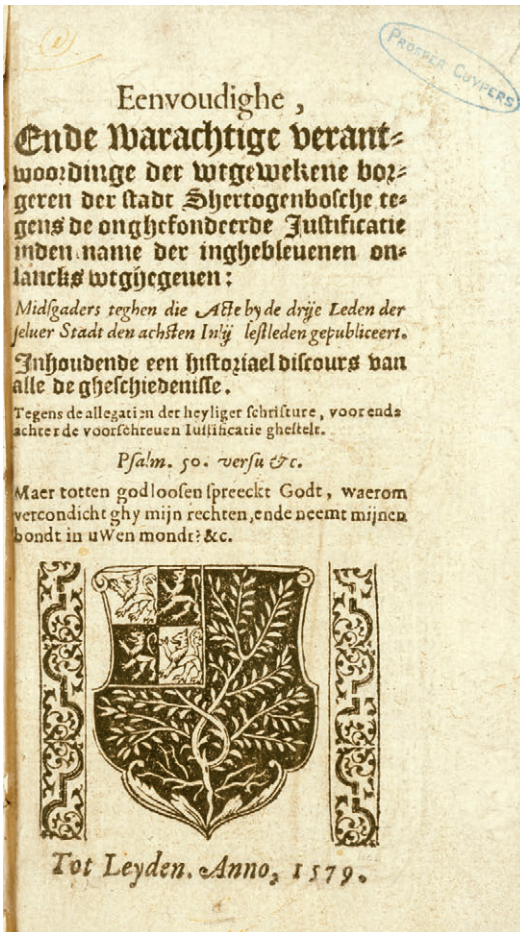 (1)
PROSPER CUYPERS
Eenvoudighe,
Ende Warachtige verant-
woordinge der wtgewekene bor-
geren der stadt Shertogenbosche te-
gens de onghefondeerde Justificatie
inden name der inghebleuenen on-
lancks wtghegeuen:
Midsgaders teghen die Acte by de drije Leden der
seluer Stadt den achsten Iulij lestleden gepubliceert.
Inhoudende een historiael discours van
alle de gheschiedenisse.
Tegens de allegatien der heyliger schrifture, voor ende
achter de voorschreuen Iustificatie ghestelt.
Psalm. 50. versu &c.
Maer totten godloosen spreeckt Godt, waerom
vercondicht ghy mijn rechten, ende neemt mijnen
bondt in uWen mondt? &c.
Tot Leyden. Anno, 1579.